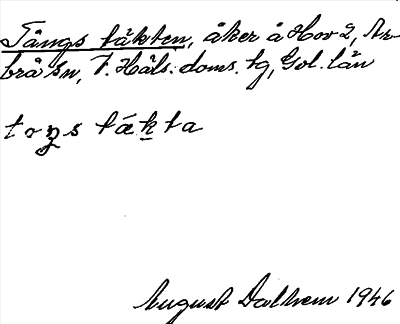 Tångs täkten, åker å Hov 2, Ar-
brå sn, V. Häls. doms. tg, Gvl. län
toŋs tækta
August Dalhem 1946